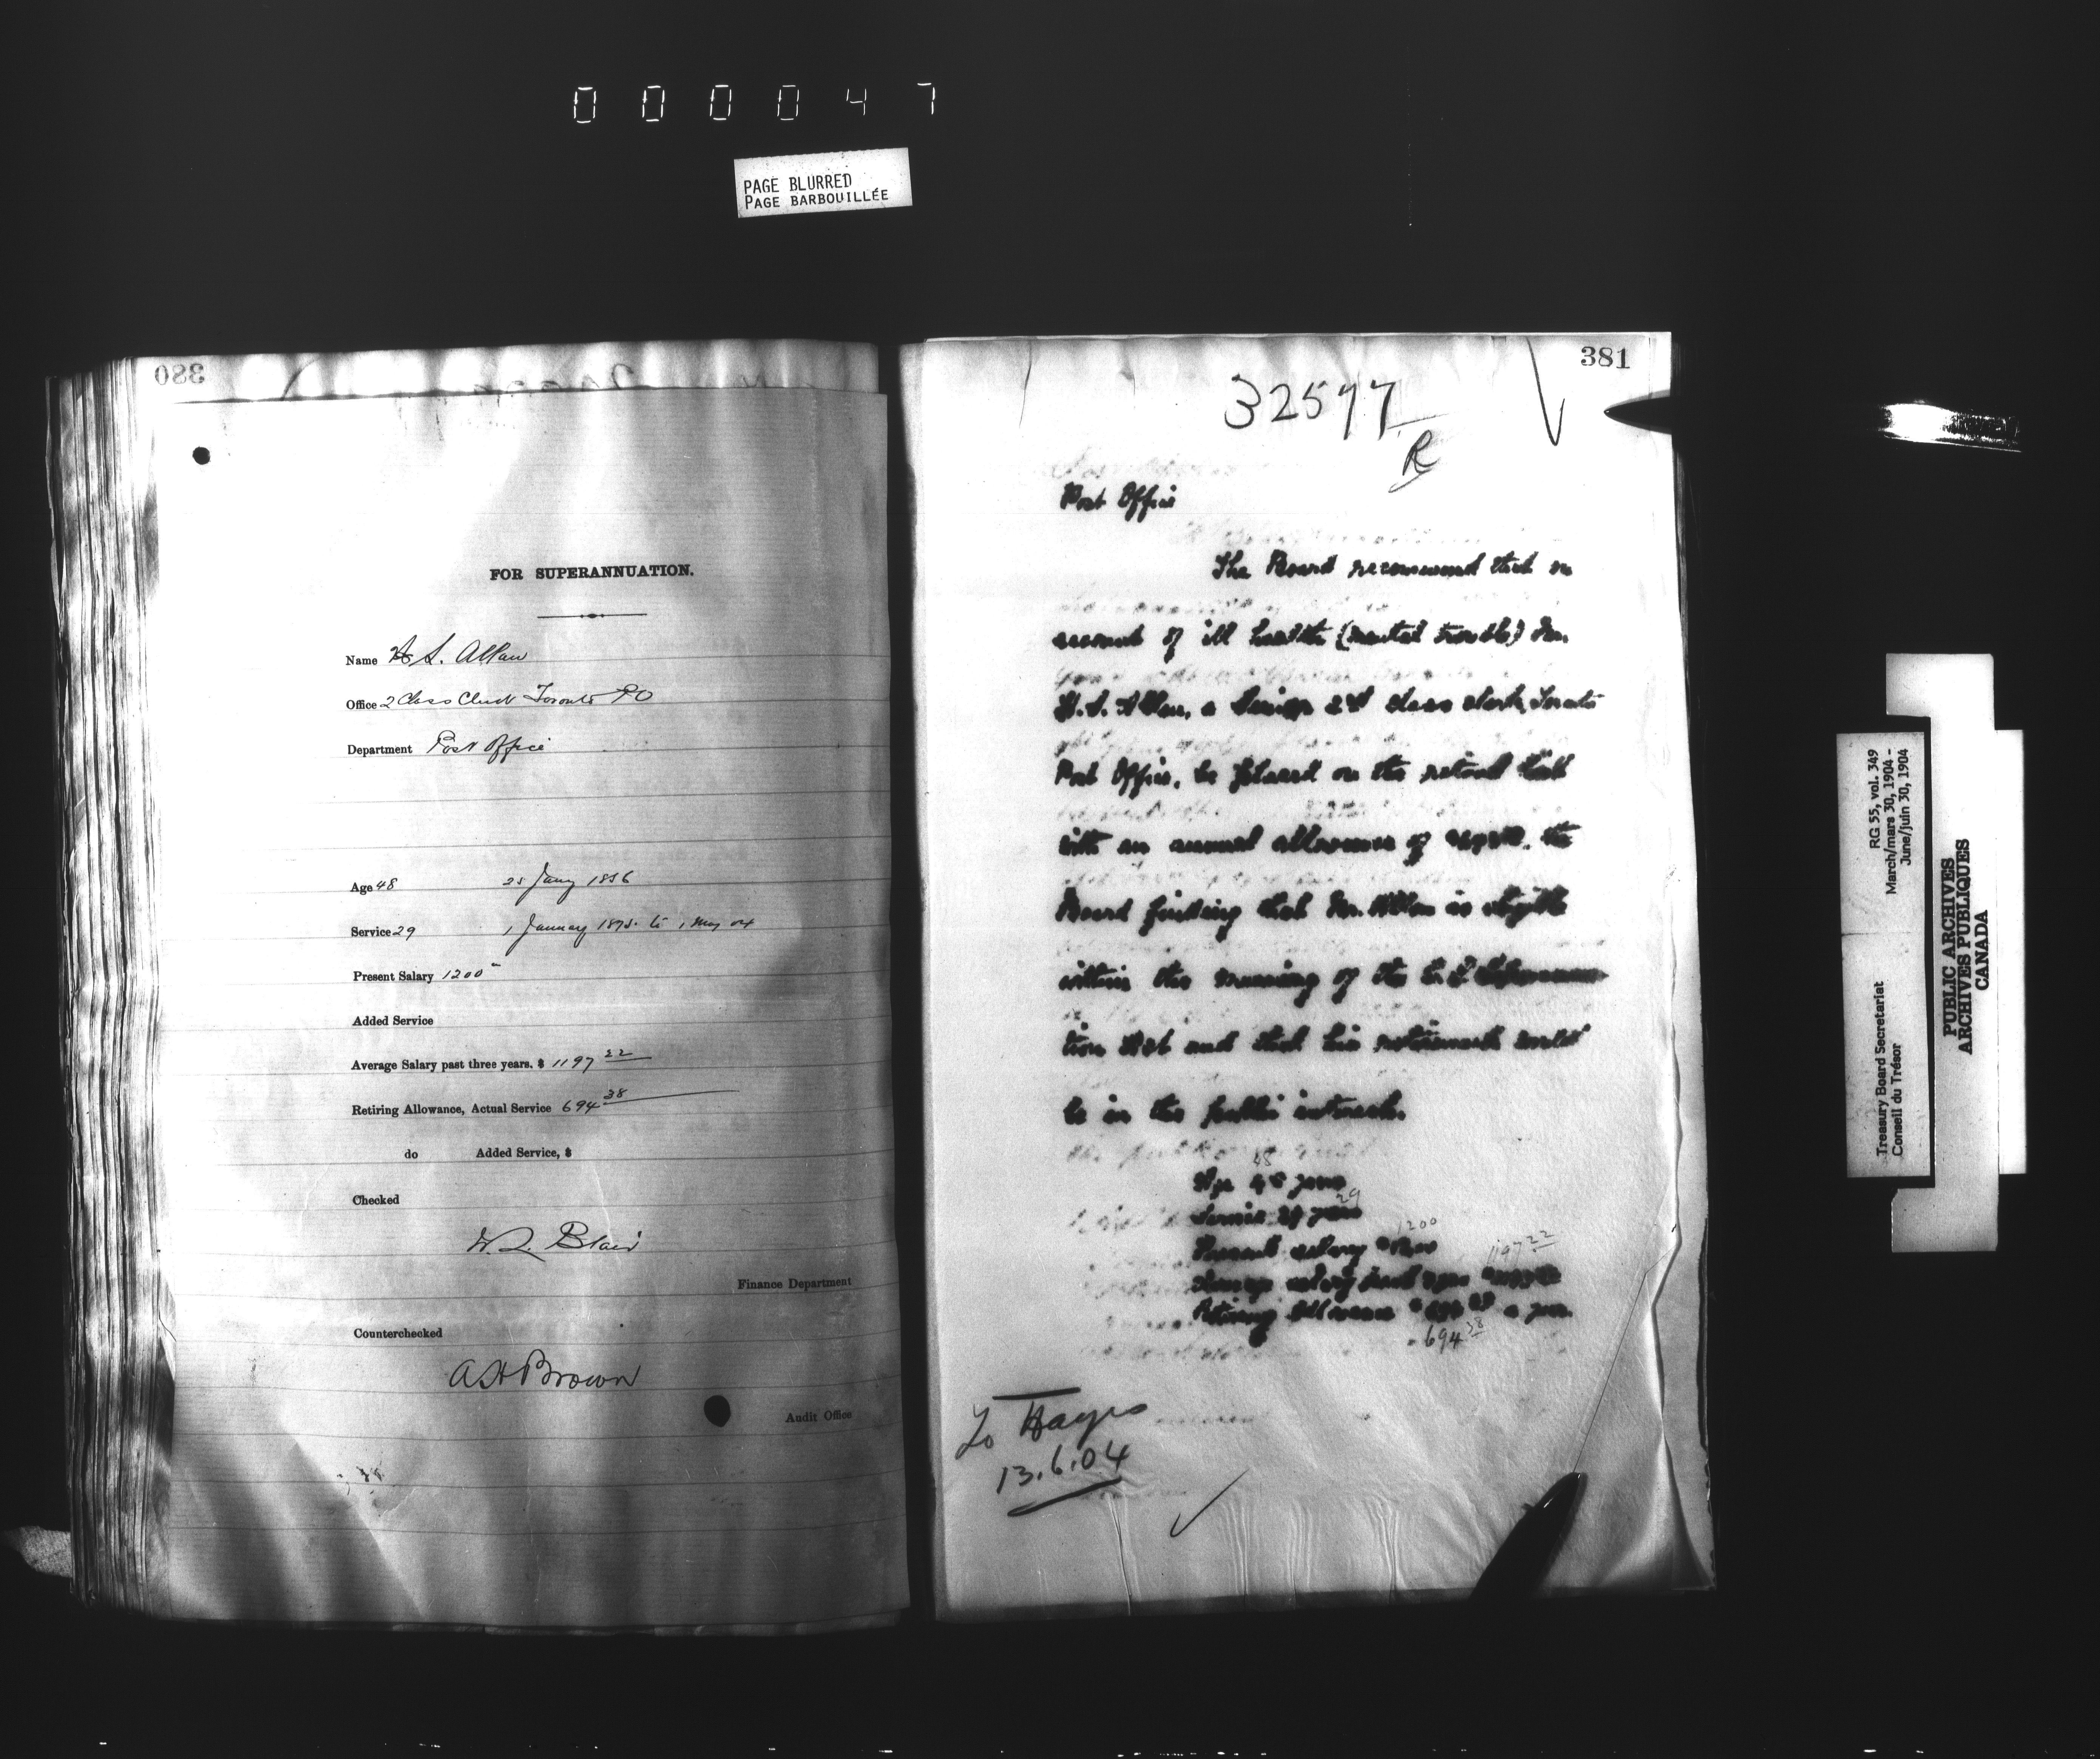 000047
PAGE BLURRED
PAGE BARBOUILLÉE
380
FOR SUPERANNUATION.
Name H S. Allan
Office 2 Class Clerk Toronto PO
Department Post Office
Age 48 25 Jany 1856
Service 29 1 January 1875. to 1 May 04
Present Salary 1200
Added Service
Average Salary past three years. $ 1197 22
Retiring Allowance, Actual Service 694 38
do Added Service, $
Checked
Blair
Finance Department
Counterchecked
A H Brown
Audit Office
381
32577
R
Post Office
The Board recommend that on
account of ill health (mental trouble) Mr.
H. S. Allan, a Senior 2nd class clerk, Toronto
Post Office, be placed on the retired list
with an annual allowance of the
Board finding that Mr. Allan is eligible
within the meaning of the C. S. Superannua-
tion Act and that his retirement would
be in the public interest.
48
Age 48 years
29
Service 29 years
1200
Present salary $1200
1197 22
Average salary past 3 years
Retiring Allowance $ 694 38 a year
694 38
To Hayes
13.6.04
RG 55, vol. 349
March/mars 30, 1904 -
June/juin 30, 1904
Treasury Board Secretariat
Conseil du Trésor
PUBLIC ARCHIVES
ARCHIVES PUBLIQUES
CANADA